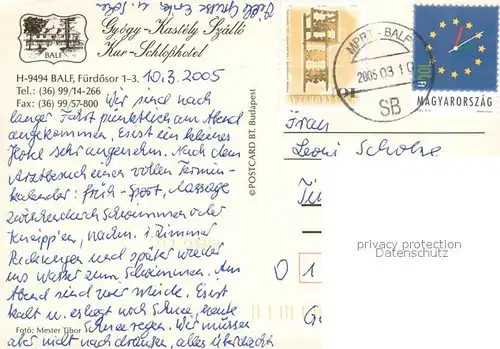 Viele Grüsse
Gyógy-Kastély Szálló
Kur-Schloßhotel
BALF
H-9494 BALF, Fürdősor 1-3. 10.3.2005
Tel.: (36) 99/14-266
Fax: (36) 99/57-800 Wir sind nach
langer Fahrt pünktlich am Abend
angekommen. Es ist ein kleines
Hotel sehr angenehm. Nach dem
Arztbesuch einen vollen Termin-
kalender: früh-Sport, Massage
zwischendurch Schwimmen oder
Kneipp'en, nachm. i. Zimmer
und später wieder
ins Wasser zum Schwimmen. Am
Abend sind wir müde. Es ist
kalt u. es liegt noch Schnee, heute
Schneeregen. Wir müssen
aber nicht nach draußen, alles überdacht
Fotó: Mester Tibor
©POSTCARD BT. Budapest
MPRT-BALF
2005 03 10
SB
MAGYARORSZÁG
100 Ft
Frau
Leoni Scholze
privacy protection
Datenschutz
01